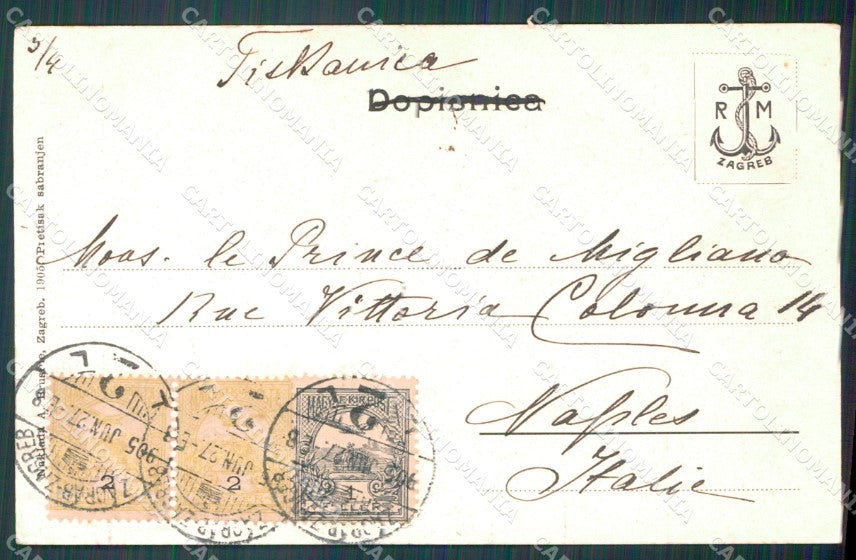 3/4
Tiskanica
Dopisnica
R M
ZAGREB
Mons. le Prince de Migliano
Rue Vittoria Colonna 14
Naples
Italie
Zagreb. 1905. Pretisak sabranjen
MAGYAR KIR.
2
2
1
JUN. 27
905 JUN. 27
ZAGREB
CARTOLINOMANIA